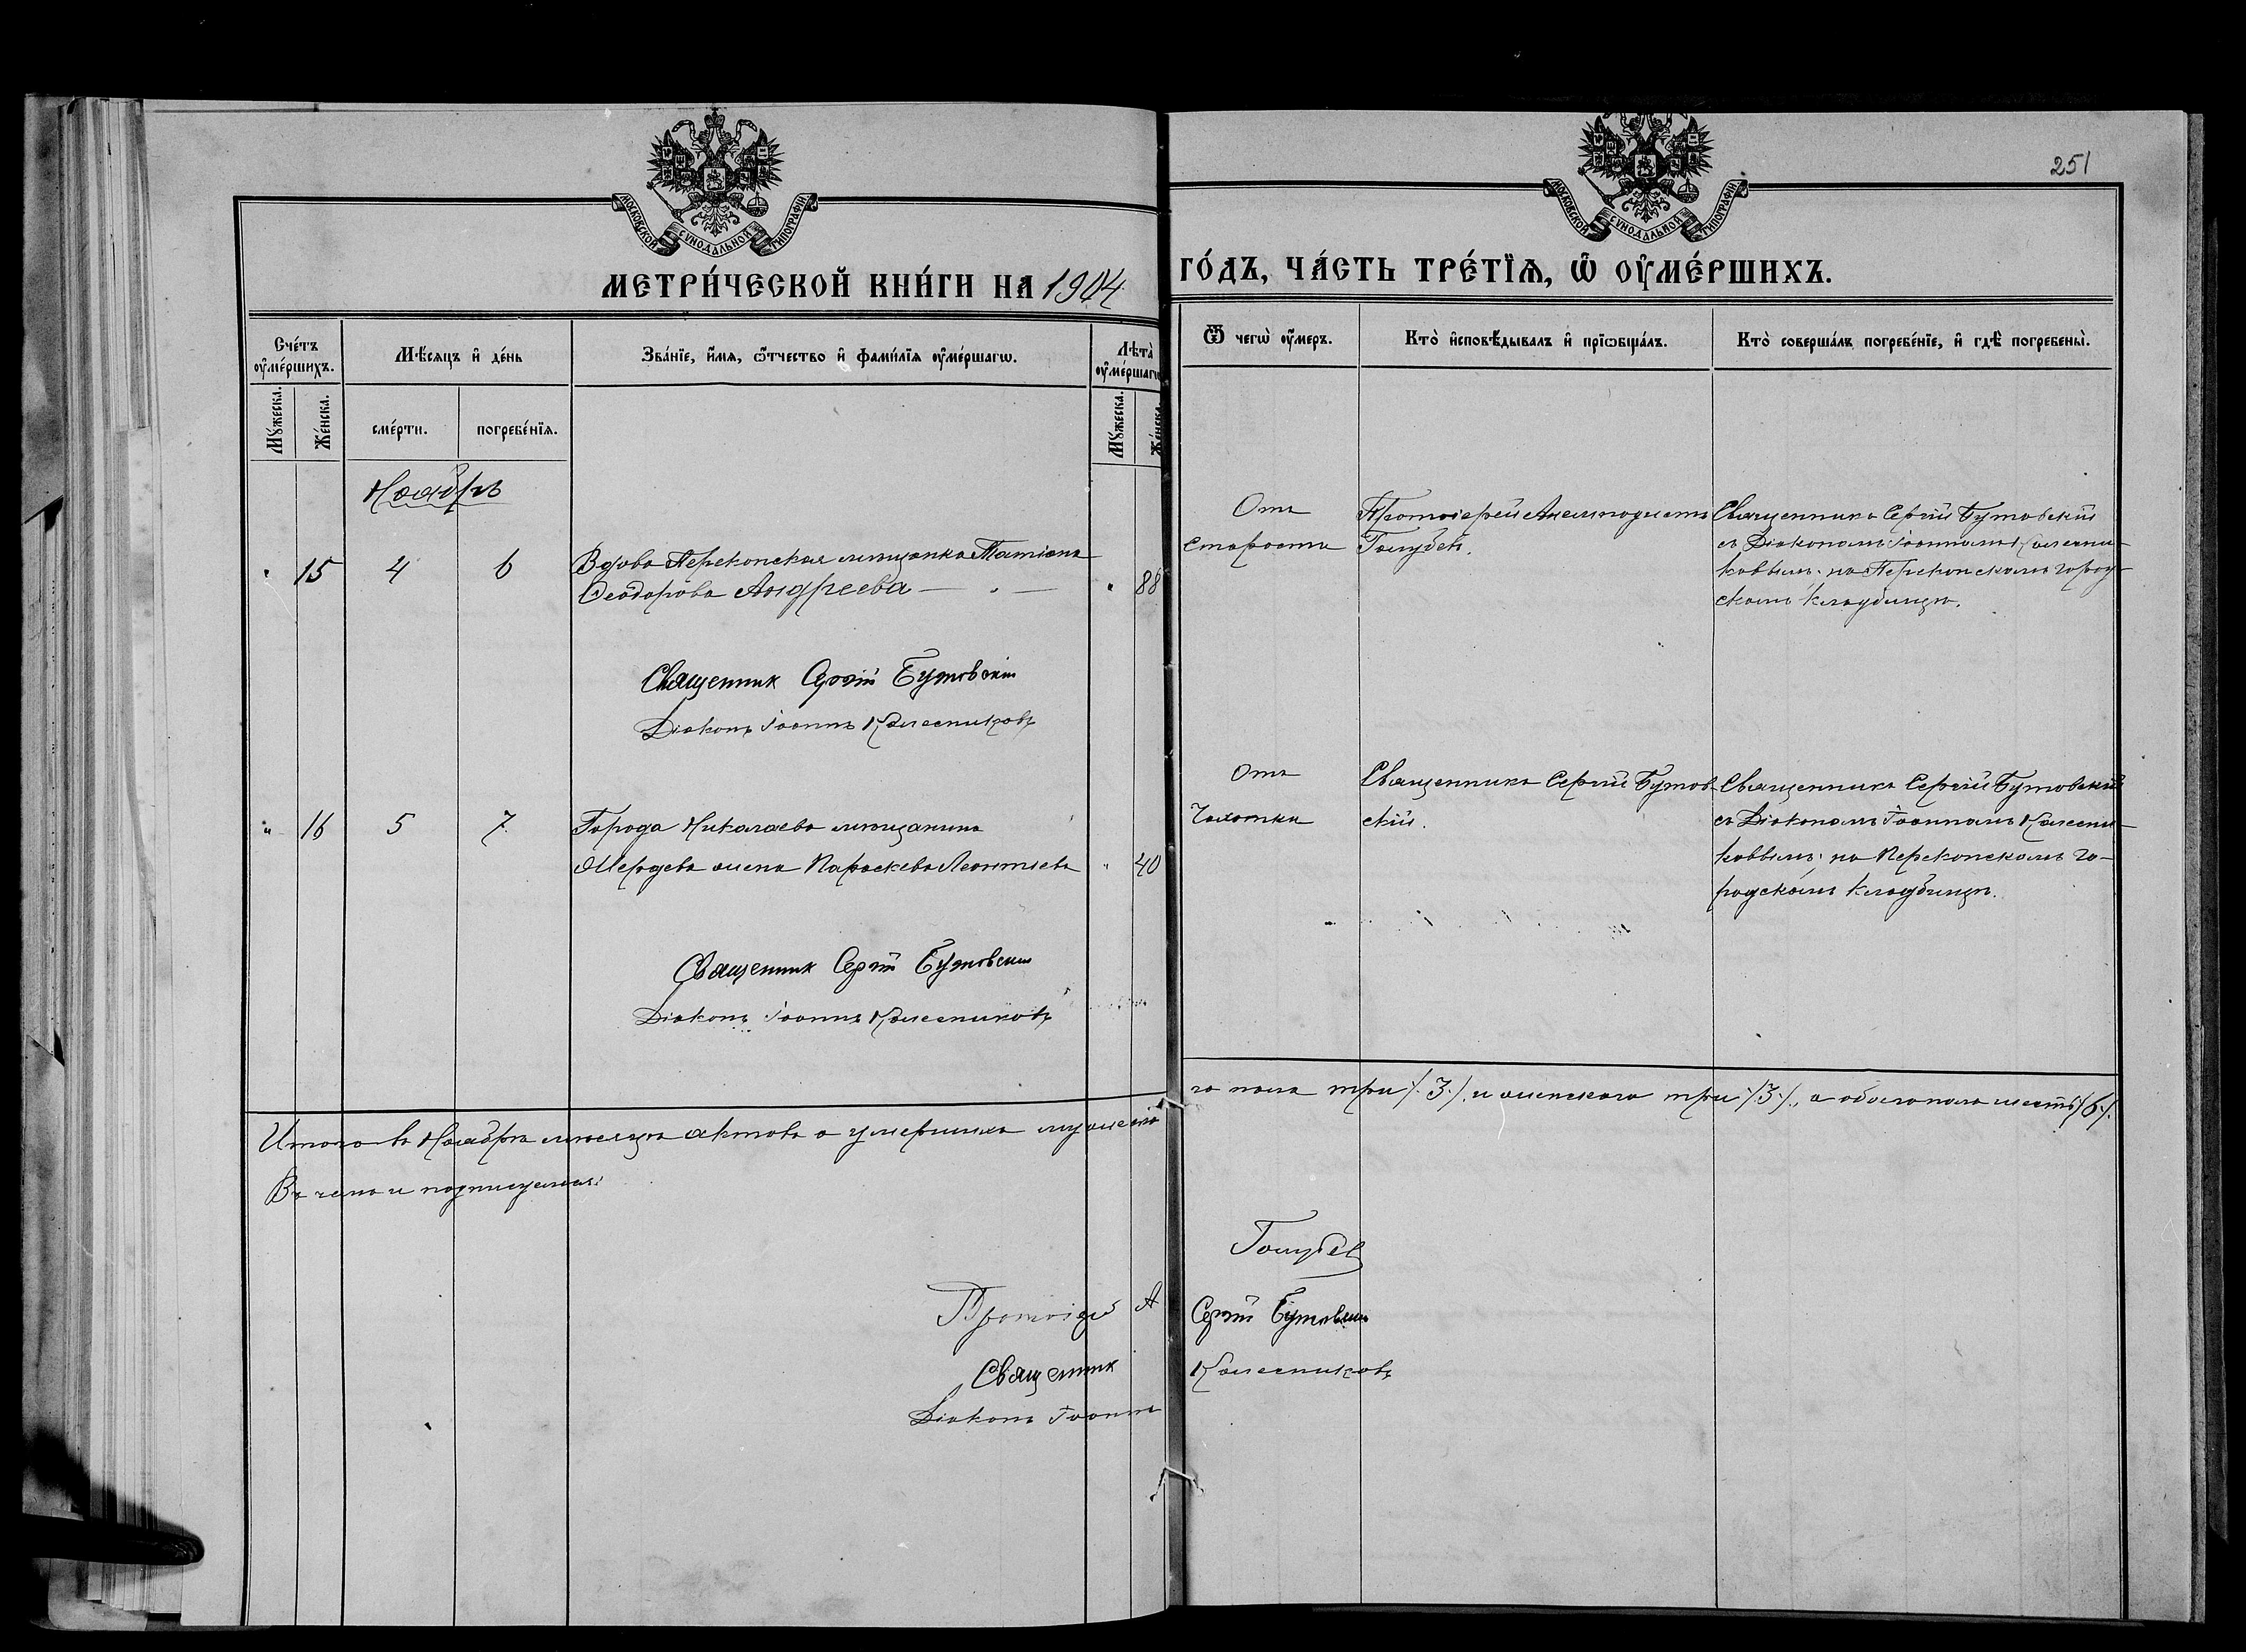 251
МОСКОВСКОЙ СѴНОДАЛЬНОЙ ТИПОГРАФІИ
МОСКОВСКОЙ СѴНОДАЛЬНОЙ ТИПОГРАФІИ
МЕТРИ́ЧЕСКОЙ КНИ́ГИ НА 1904
ГО́ДЪ, ЧА́СТЬ ТРЕ́ТЇѦ, Ѡ҆ ОУ҆МЕ́РШИХЪ.
Сче́тъ оу҆ме́ршихъ.
Мѣ́сяцъ и҆ де́нь
Зва́нїе, и҆́мя, ѻ҆́тчество и҆ фами́лїя оу҆ме́ршагѡ.
Лѣта̀ оу҆ме́ршагѡ
Мꙋ́жеска.
Же́нска.
сме́рти.
погребе́нїя.
Мꙋ́жеска.
Же́нска.
Ѿ чегѡ̀ оу҆́меръ.
Кто̀ и҆сповѣ́дывалъ и҆ прїѡбща́лъ.
Кто̀ соверша́лъ погребе́нїе, и҆ гдѣ̀ погребены̀.
Ноябрь
" 15 4 6
Вдова Перекопская мѣщанка Татіана
Ѳеодорова Андреева — " —
" 88
Отъ
старости
Протоіерей Анемподистъ
Голубев.
Священникъ Сергій Бутовскій
съ Діакономъ Іоанномъ Колесни-
ковымъ; на Перекопскомъ город-
скомъ кладбищѣ.
Священник Сергій Бутовскій
Діаконъ Іоаннъ Колесниковъ
" 16 5 7
Города Николаева мѣщанина
жена Параскева Леонтіева
" 40
Отъ
Чахотки
Священникъ Сергій Бутов-
скій.
Священникъ Сергій Бутовскій
съ Діакономъ Іоанномъ Колесни-
ковымъ; на Перекопскомъ го-
родскомъ кладбищѣ.
Священник Сергій Бутовскій
Діаконъ Іоаннъ Колесниковъ
Итого въ Ноябрѣ мѣсяцѣ актовъ о умершихъ мужеска-
го пола три /.3./ и женскаго три /.3./, а обоего пола шесть /.6./.
Въ чемъ и подписуемся:
Протоіерей А Голубев
Священник Сергій Бутовскій
Діаконъ Іоаннъ Колесниковъ